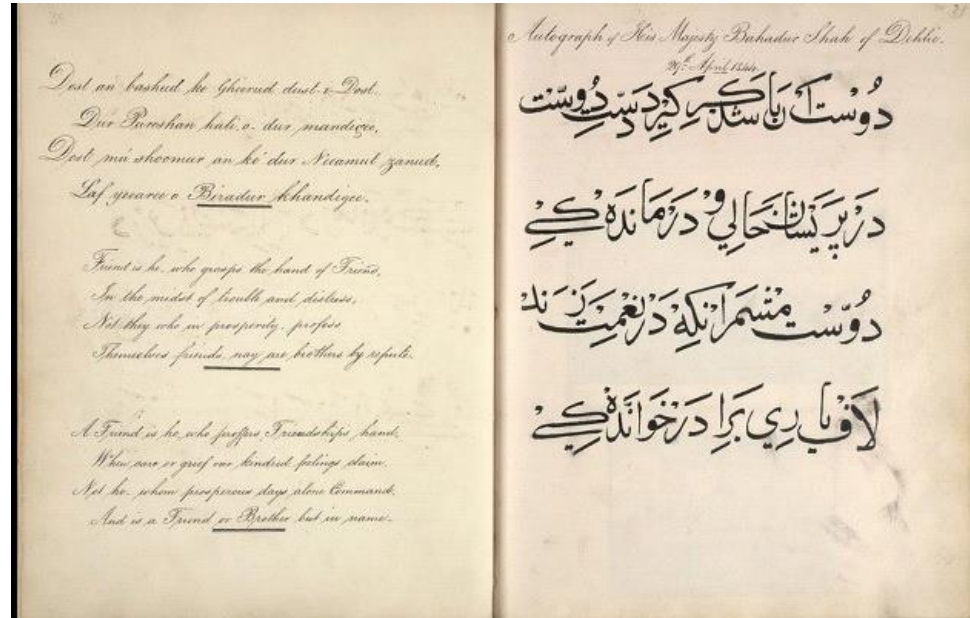 Dost an bashud ke Gheerud dust-i-Dost.
Dur Pareshan hali o dur mandigee,
Dost mu shoomur an ke dur Neeamut zanud,
Laf yaaree o Biradur khandigee.
Friend is he, who grasps the hand of Friend,
In the midst of trouble and distress,
Not they who in prosperity, profess
Themselves friends, nay are brothers by repute.
A Friend is he, who proffers Friendships hand,
When care or grief our kindred feelings claim.
Not he, whom prosperous days alone Command,
And is a Friend or Brother but in name.
Autograph of His Majesty Bahadur Shah of Dehlie.
29th April 1844.
دوست آن باشد كه گیرد دست دوست
در پریشان حالي و درمانده كے
دوست مشمر آنكه در نعمت زند
لاف یاري برادر خوانده كے